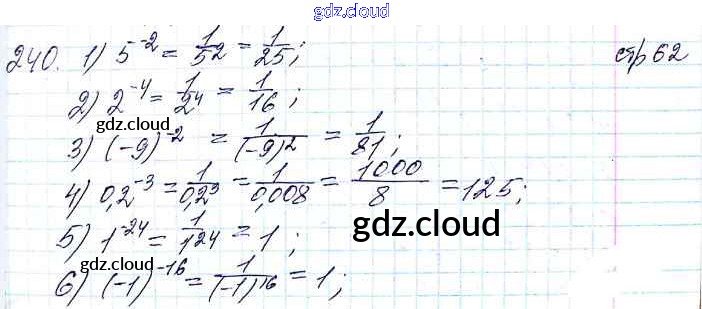 gdz.cloud
240. 1) 5^-2 = 1/5^2 = 1/25; стр 62
2) 2^-4 = 1/2^4 = 1/16;
gdz.cloud
3) (-9)^-2 = 1/(-9)^2 = 1/81;
4) 0,2^-3 = 1/0,2^3 = 1/0,008 = 1000/8 = 125;
gdz.cloud
5) 1^-24 = 1/1^24 = 1;
gdz.cloud
6) (-1)^-16 = 1/(-1)^16 = 1;